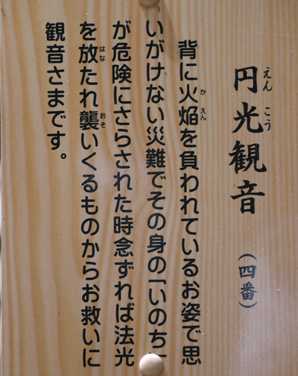 円光観音
(四番)
背に火焔を負われているお姿で思
いがけない災難でその身の「いのち」
が危険にさらされた時念ずれば法光
を放たれ襲いくるものからお救いに
観音さまです。